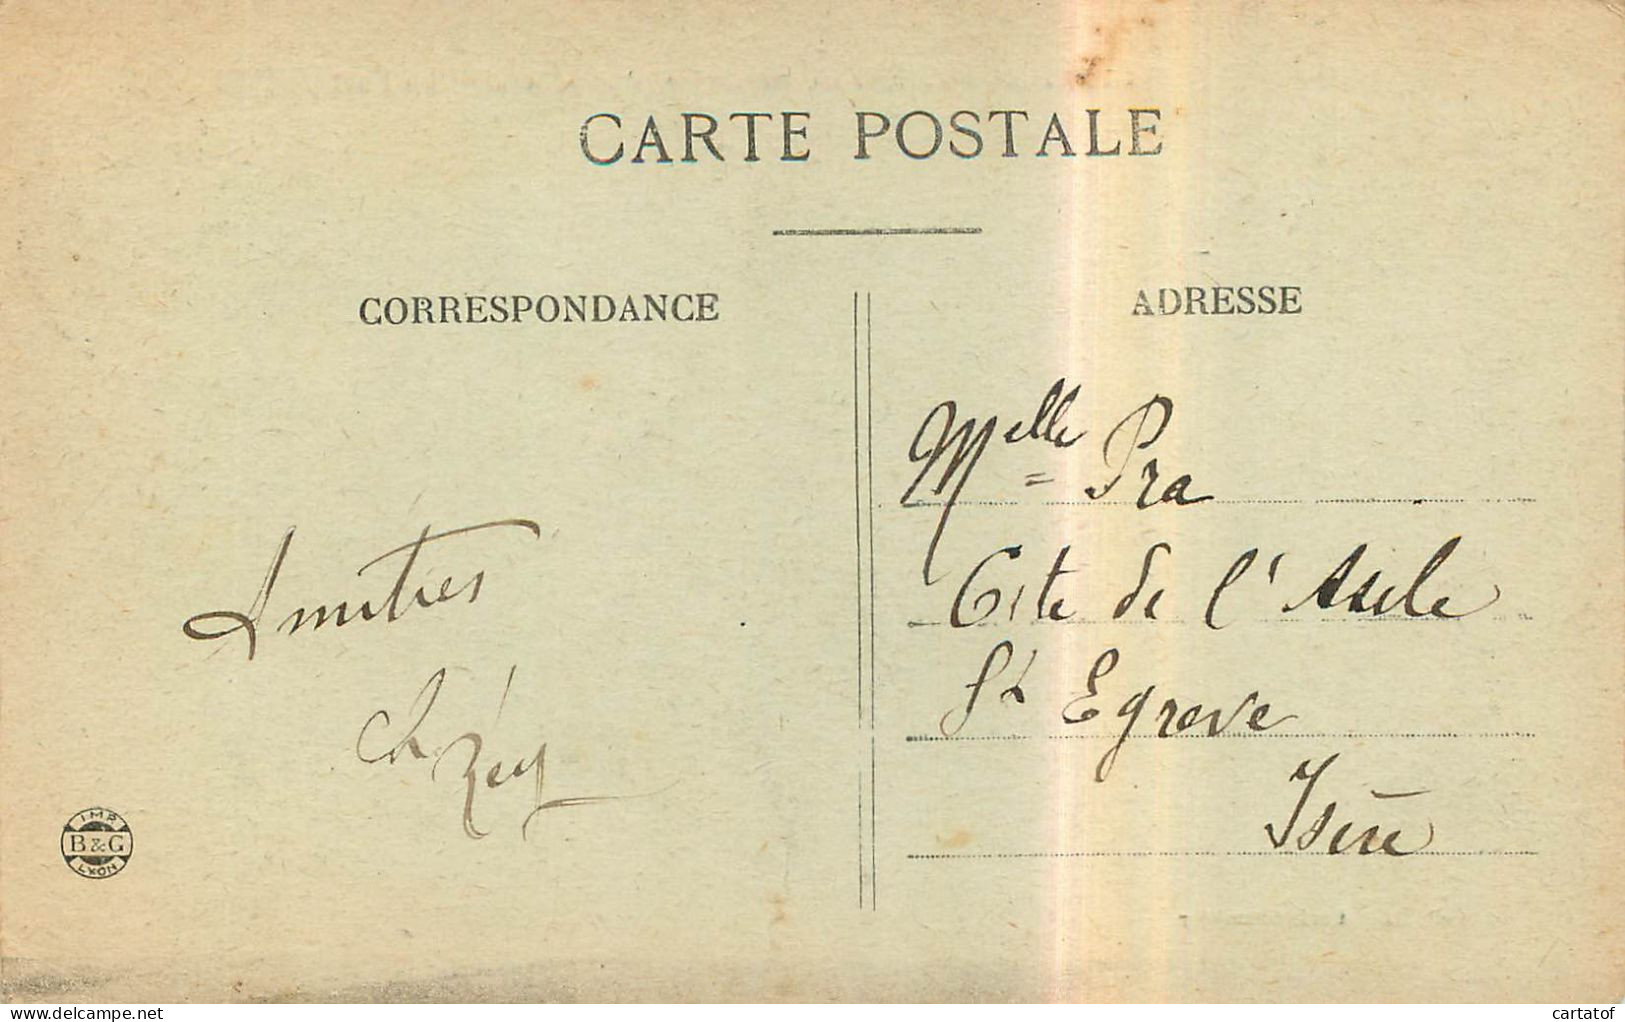 CARTE POSTALE
CORRESPONDANCE
ADRESSE
Melle Pra
Cite de l'Asile
St Egreve
Isère
Amitiés
Ch Rey
IMP.
B & G
LYON
www.delcampe.net
cartatof